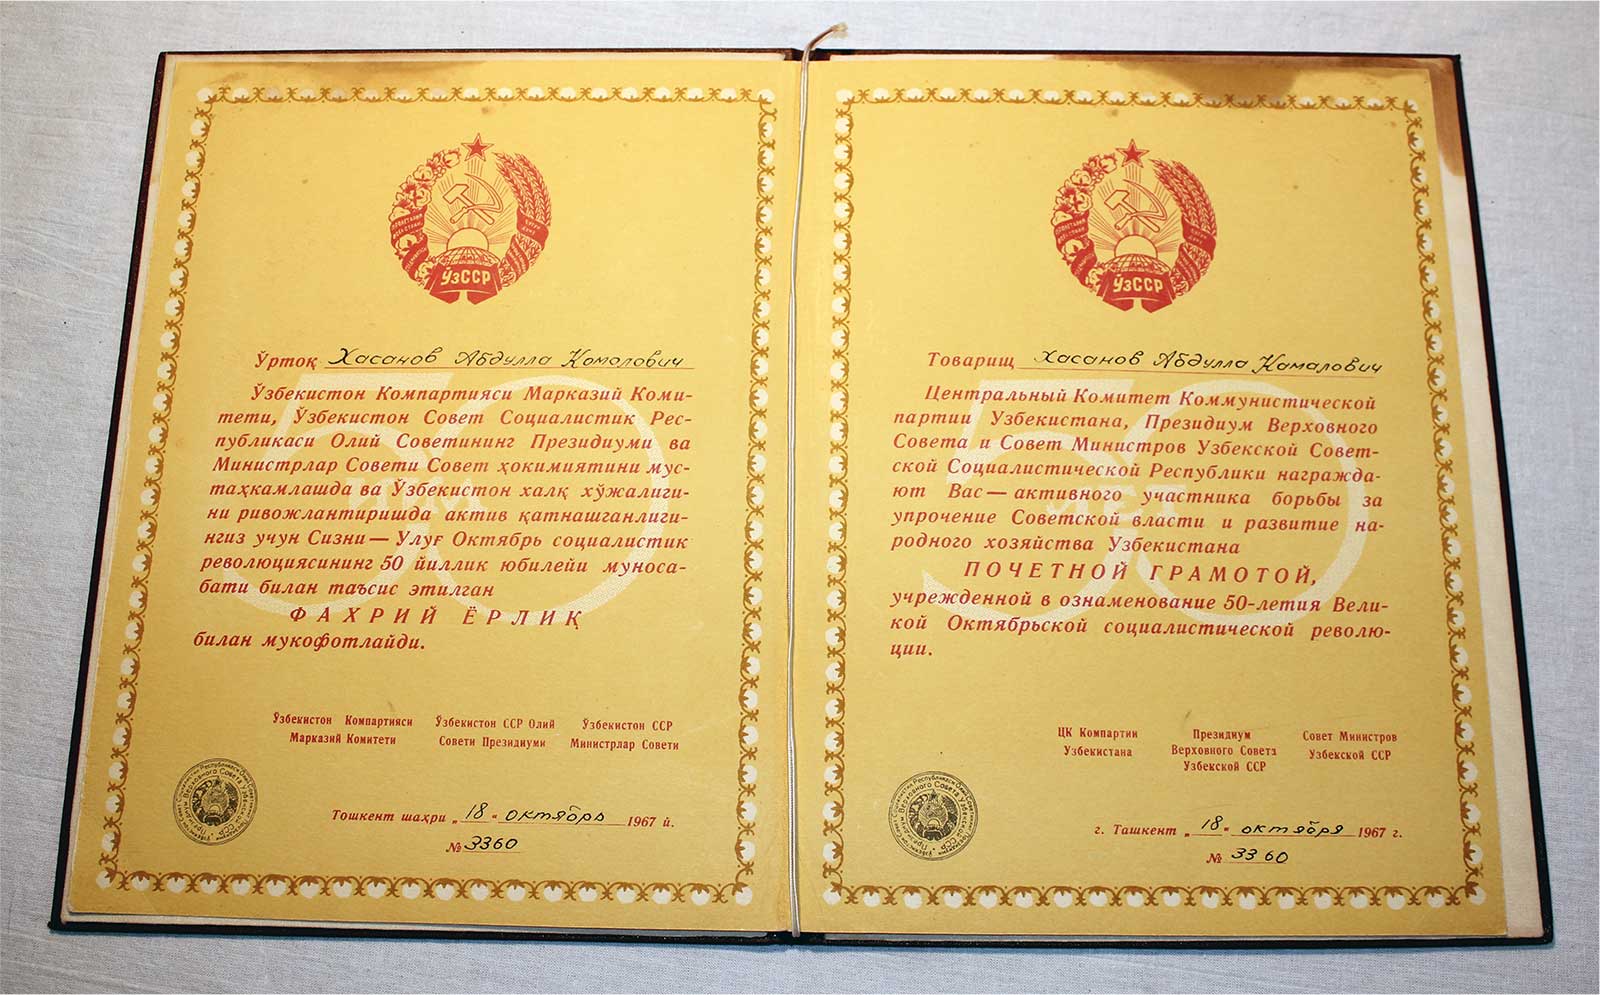 ЎзССР
Ўртоқ Хасанов Абдулла Комолович
Ўзбекистон Компартияси Марказий Коми-
тети, Ўзбекистон Совет Социалистик Рес-
публикаси Олий Советининг Президиуми ва
Министрлар Совети Совет ҳокимиятини мус-
таҳкамлашда ва Ўзбекистон халқ хўжалиги-
ни ривожлантиришда актив қатнашганлиги-
нгиз учун Сизни — Улуғ Октябрь социалистик
революциясининг 50 йиллик юбилейи муноса-
бати билан таъсис этилган
ФАХРИЙ ЁРЛИҚ
билан мукофотлайди.
Ўзбекистон Компартияси
Марказий Комитети
Ўзбекистон ССР Олий
Совети Президиуми
Ўзбекистон ССР
Министрлар Совети
Тошкент шаҳри „18“ октябрь 1967 й.
№ 3360
ЎзССР
Товарищ Хасанов Абдулла Камалович
Центральный Комитет Коммунистической
партии Узбекистана, Президиум Верховного
Совета и Совет Министров Узбекской Совет-
ской Социалистической Республики награжда-
ют Вас — активного участника борьбы за
упрочение Советской власти и развитие на-
родного хозяйства Узбекистана
ПОЧЕТНОЙ ГРАМОТОЙ,
учрежденной в ознаменование 50-летия Вели-
кой Октябрьской социалистической револю-
ции.
ЦК Компартии
Узбекистана
Президиум
Верховного Совета
Узбекской ССР
Совет Министров
Узбекской ССР
г. Ташкент „18“ октября 1967 г.
№ 3360